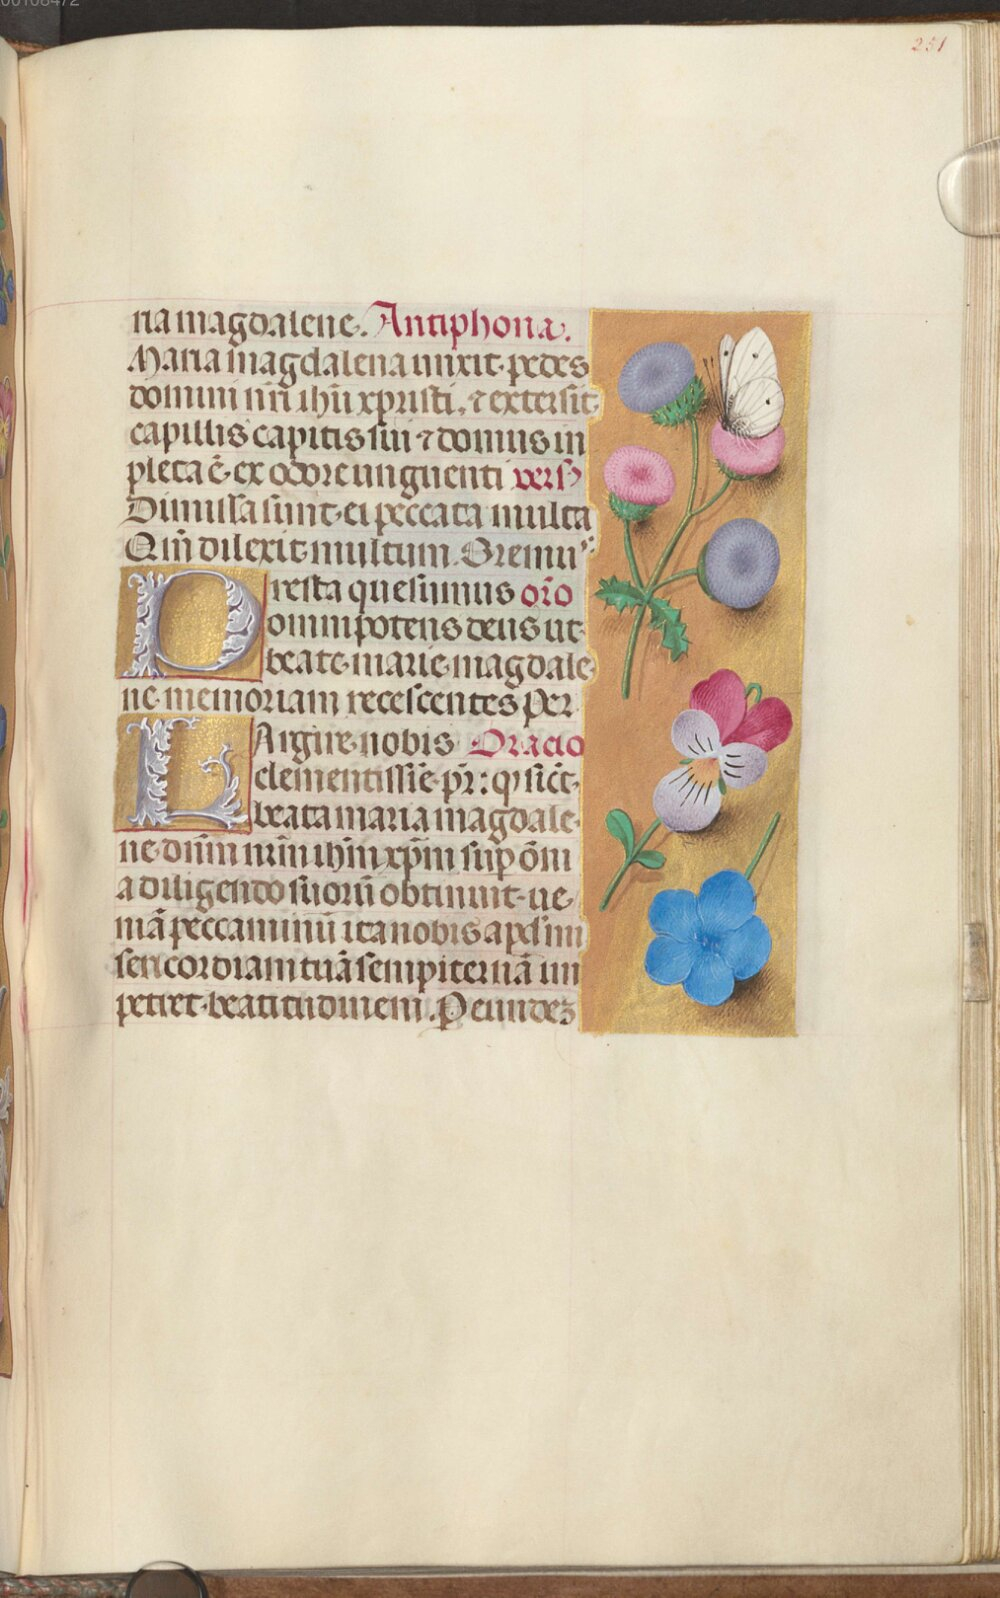 00108472
251
ria magdalene. Antiphona.
Maria magdalena unxit pedes
domini nr̄i ihū xpristi, ⁊ extersit
capillis capitis sui ⁊ domus in
pleta ē ex odore unguenti vers
Dimissa sunt ei peccata multa
Qm̄ dilexit multum. Oremu
Presta quesumus or̄o
omnipotens deus ut
beate marie magdale
ne memoriam recescentes Per
Largire nobis Oracio
clementissīe pr̄: q sic̄t
beata maria magdale
ne dn̄m nr̄m ihm̄ xpm̄ sup om̄i
a diligendo suorū obtinuit ve
niā peccaminū ita nobis apd mi
sericordiam tuā sempiternā im
petret beatitudinem. P eundez